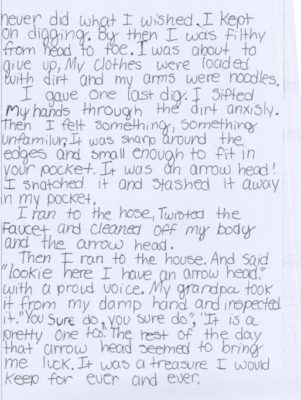 never did what I wished. I kept
on digging. By then I was filthy
from head to toe. I was about to
give up, My clothes were loaded
with dirt and my arms were noodles.
I gave one last dig. I sifted
My hands through the dirt anxisly.
Then I felt something, something
unfamilur. It was sharp around the
edges and small enough to fit in
your pocket. It was an arrow head!
I snatched it and stashed it away
in my pocket.
I ran to the hose, Twisted the
Faucet and cleaned off my body
and the arrow head.
Then I ran to the house. And said
"lookie here I have an arrow head."
with a proud voice. My grandpa took
it from my damp hand and inspected
it. "You Sure do, you sure do", "It is a
pretty one too." The rest of the day
that arrow head seemed to bring
me luck. It was a treasure I would
keep for ever and ever.